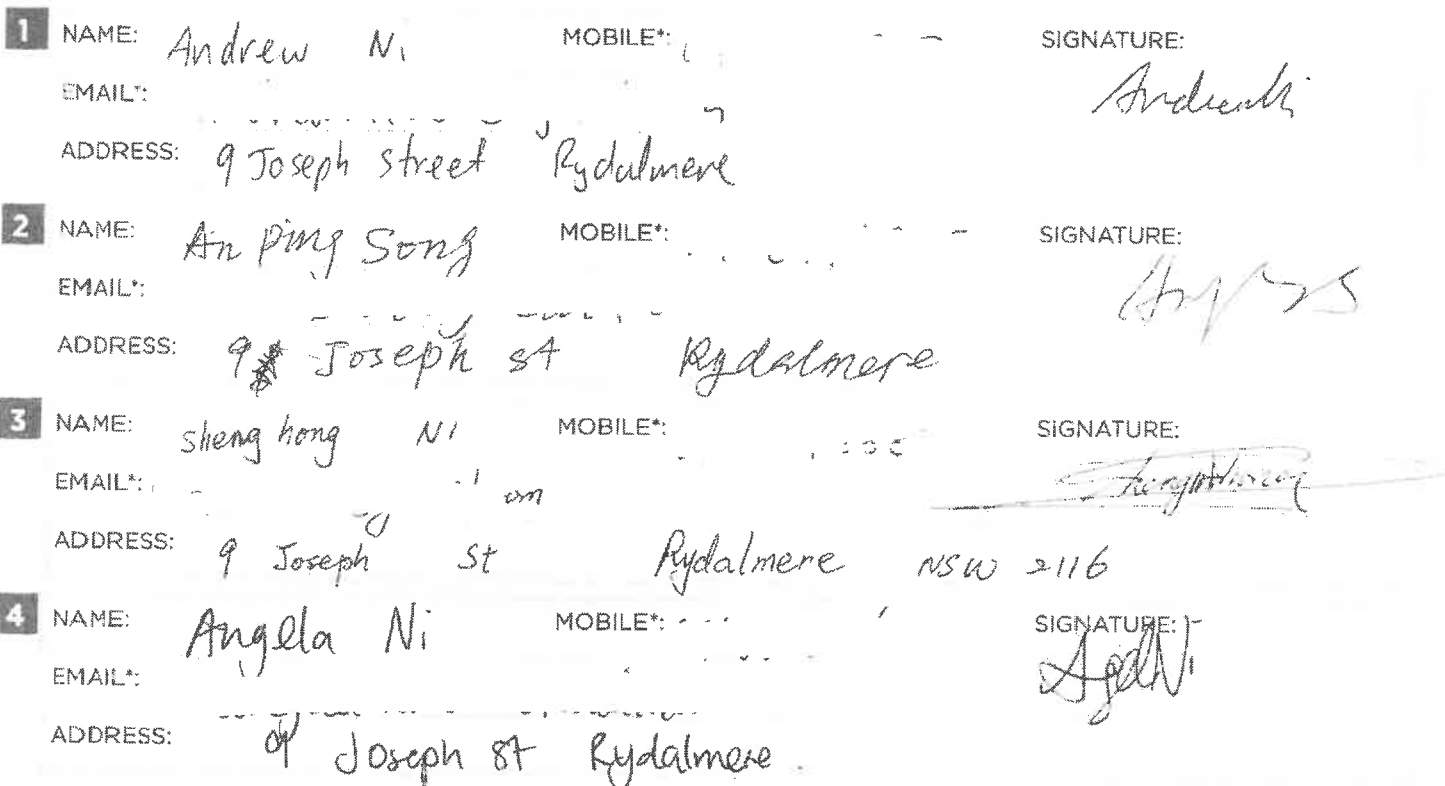 1 NAME: Andrew Ni MOBILE*: SIGNATURE:
EMAIL*:
ADDRESS: 9 Joseph Street Rydalmere
2 NAME: An Ping Song MOBILE*: SIGNATURE:
EMAIL*:
ADDRESS: 9 Joseph St Rydalmere
3 NAME: Sheng hong Ni MOBILE*: SIGNATURE:
EMAIL*:
ADDRESS: 9 Joseph St Rydalmere NSW 2116
4 NAME: Angela Ni MOBILE*: SIGNATURE:
EMAIL*:
ADDRESS: 9 Joseph St Rydalmere